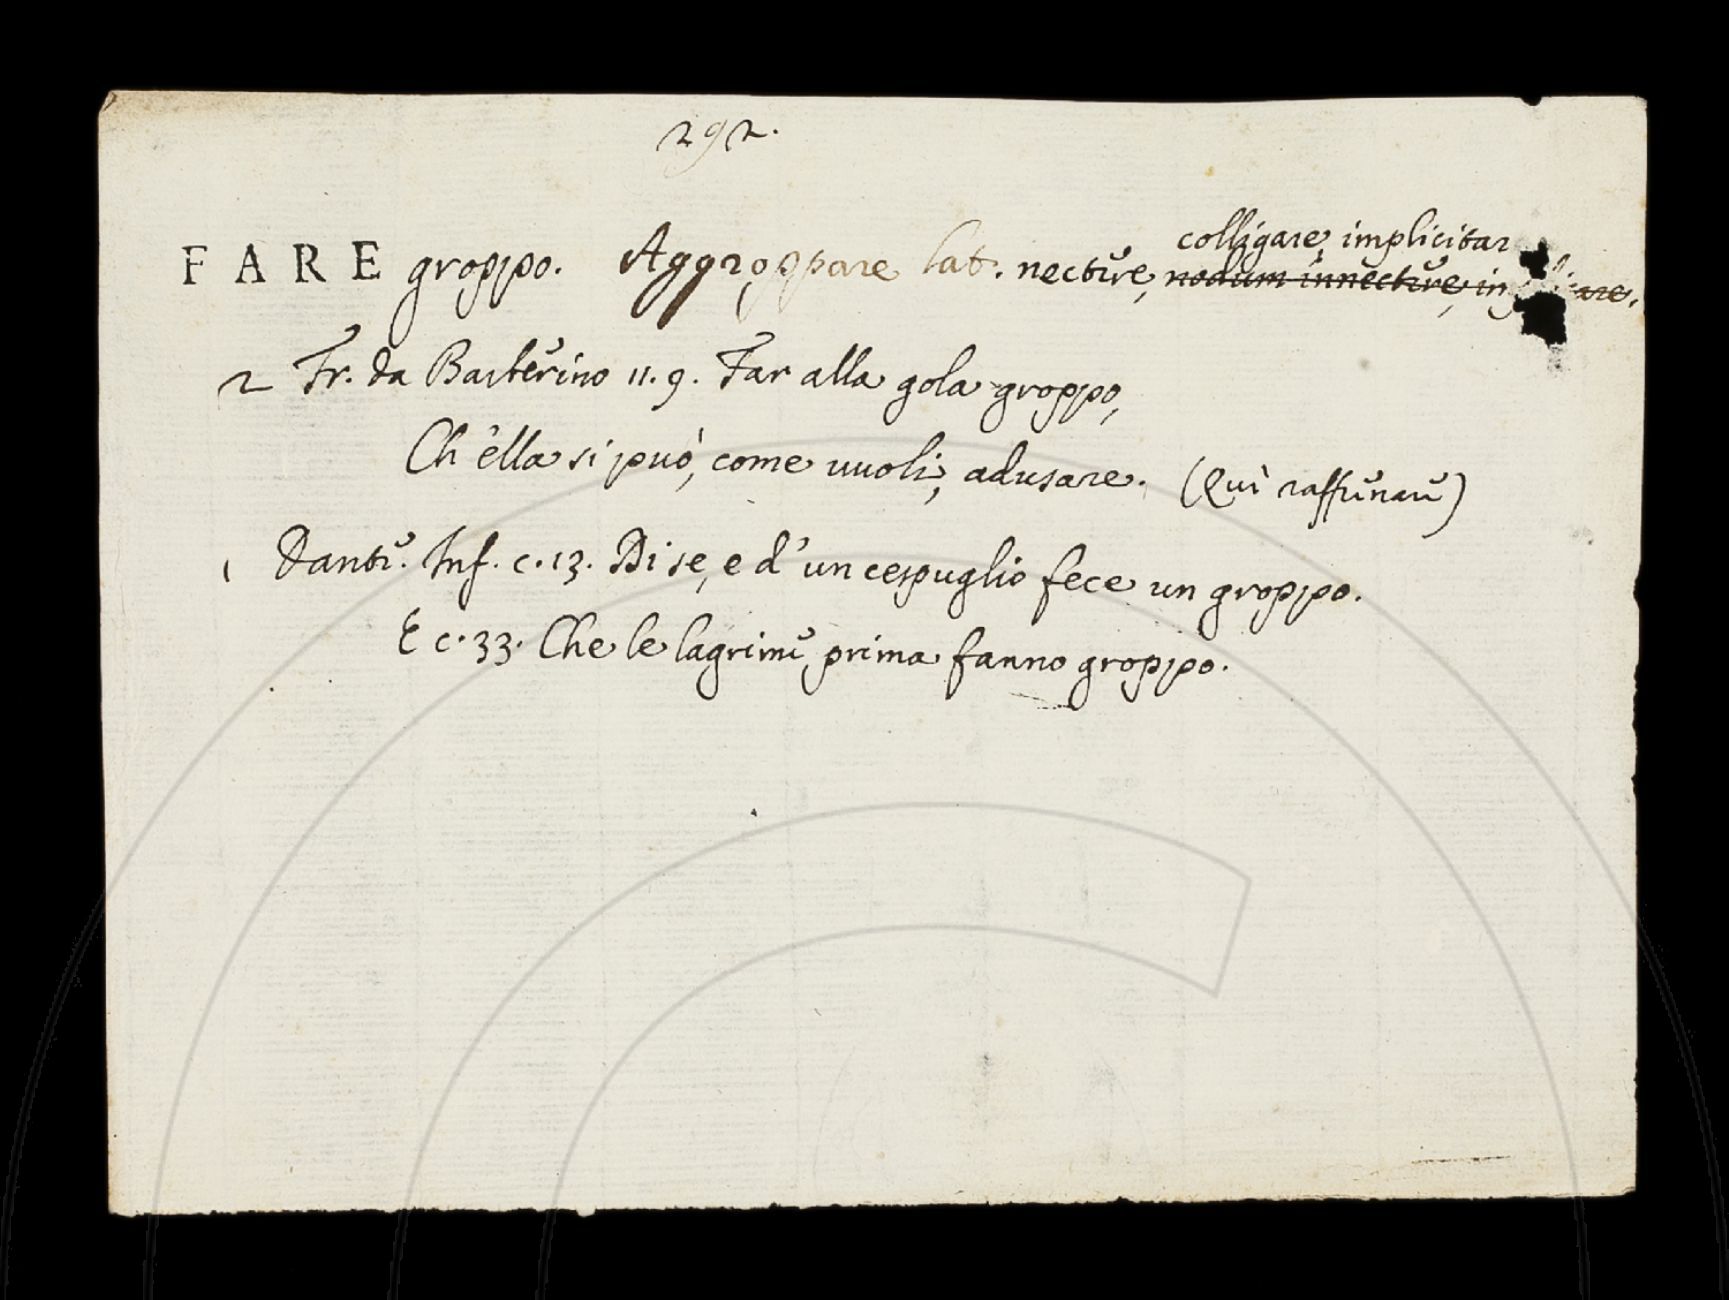 292.
colligare, implicitar
FARE groppo. Aggroppare lat. nectere, nodum innectere, in
2 Fr. da Barberino 11. 9. Far alla gola groppo,
Ch'ella si può, come vuoli, adusare. (Quì raffrenare)
1 Dante. Inf. c. 13. Di se, e d'un cespuglio fece un groppo.
E c. 33. Che le lagrime prima fanno groppo.